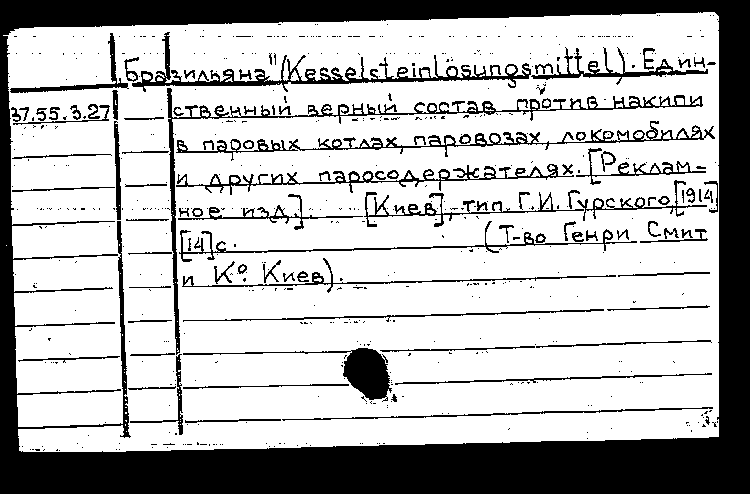 „Бразильяна" (Kesselsteinlösungsmittel). Един-
37.55.3.27 ственный верный состав против накипи
в паровых котлах, паровозах, локомобилях
и других паросодержателях. [Реклам-
ное изд.]. [Киев], тип. Г.И. Гурского, [1914]
[14] с. (Т-во Генри Смит
и К°. Киев).